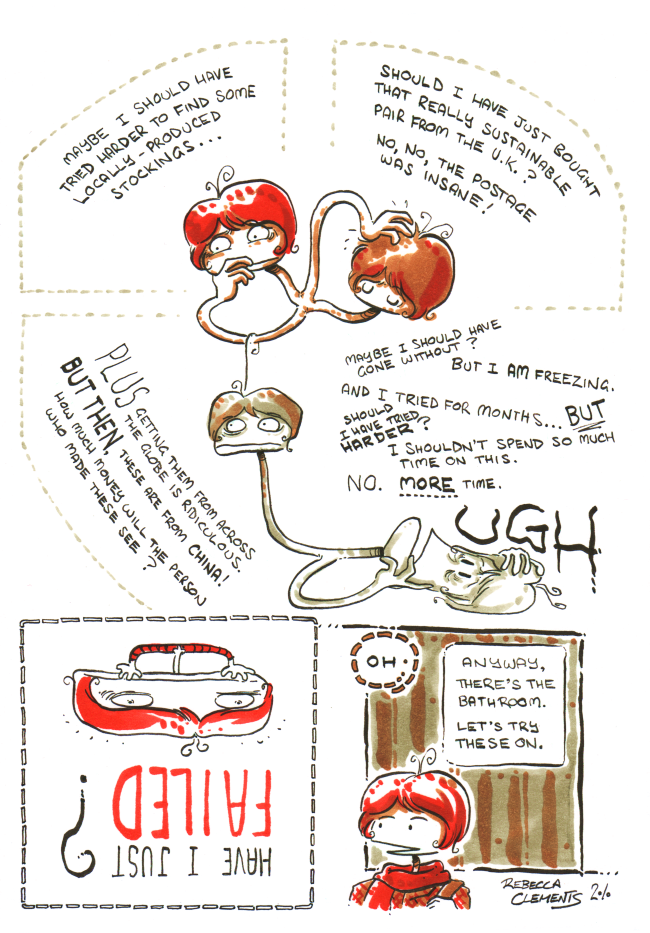 MAYBE I SHOULD HAVE
TRIED HARDER TO FIND SOME
LOCALLY PRODUCED
STOCKINGS...
SHOULD I HAVE JUST BOUGHT
THAT REALLY SUSTAINABLE
PAIR FROM THE U.K.?
NO, NO, THE POSTAGE
WAS INSANE!
MAYBE I SHOULD HAVE
GONE WITHOUT?
BUT I AM FREEZING.
AND I TRIED FOR MONTHS... BUT
SHOULD
I HAVE TRIED
HARDER?
I SHOULDN'T SPEND SO MUCH
TIME ON THIS.
NO. MORE TIME.
UGH
PLUS GETTING THEM FROM ACROSS
THE GLOBE IS RIDICULOUS.
BUT THEN, THESE ARE FROM CHINA!
HOW MUCH MONEY WILL THE PERSON
WHO MADE THESE SEE?
HAVE I JUST
FAILED?
OH.
ANYWAY,
THERE'S THE
BATHROOM.
LET'S TRY
THESE ON.
REBECCA
CLEMENTS